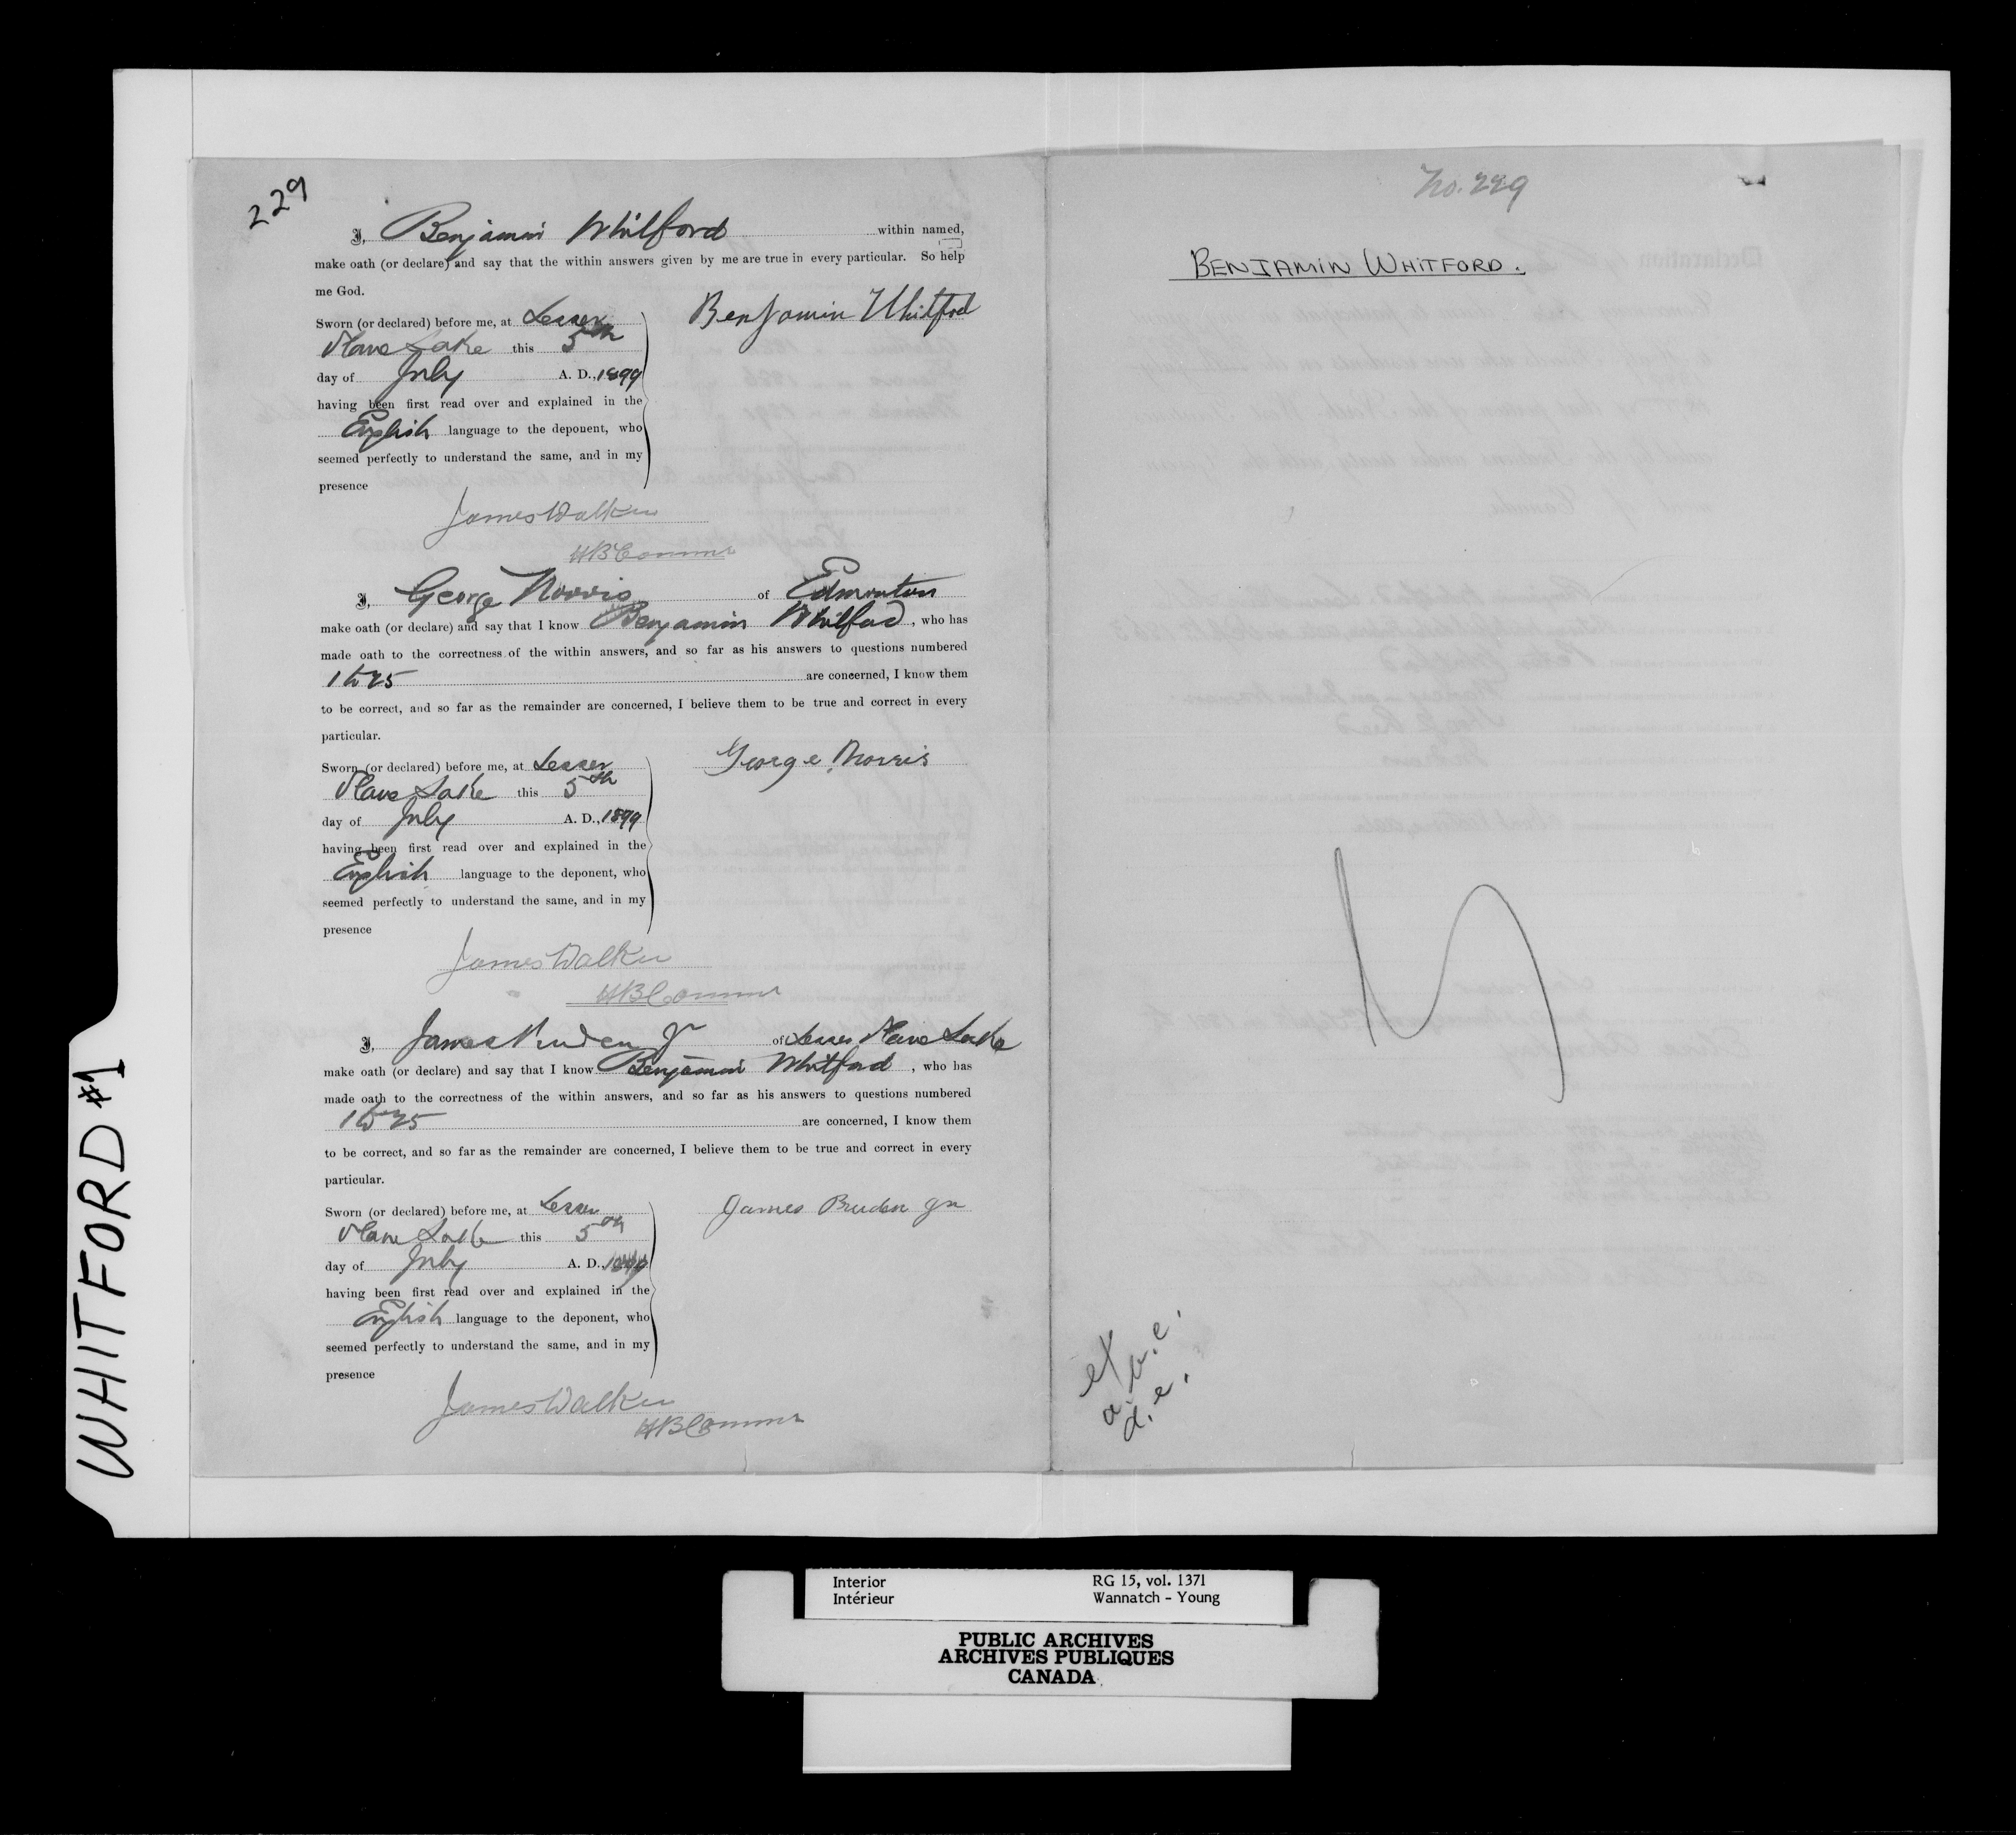 229
I, Benjamin Whitford within named,
make oath (or declare) and say that the within answers given by me are true in every particular. So help
me God.
Sworn (or declared) before me, at Lesser
Slave Lake this 5th
day of July A. D., 1899
having been first read over and explained in the
English language to the deponent, who
seemed perfectly to understand the same, and in my
presence
Benjamin Whitford
James Walker
HBComms
I, George Norris of Edmonton
make oath (or declare) and say that I know Benjamin Whitford, who has
made oath to the correctness of the within answers, and so far as his answers to questions numbered
1 to 25 are concerned, I know them
to be correct, and so far as the remainder are concerned, I believe them to be true and correct in every
particular.
Sworn (or declared) before me, at Lesser
Slave Lake this 5th
day of July A. D., 1899
having been first read over and explained in the
English language to the deponent, who
seemed perfectly to understand the same, and in my
presence
George Norris
James Walker
HBComms
I, James Pruden Jr of Lesser Slave Lake
make oath (or declare) and say that I know Benjamin Whitford, who has
made oath to the correctness of the within answers, and so far as his answers to questions numbered
1 to 25 are concerned, I know them
to be correct, and so far as the remainder are concerned, I believe them to be true and correct in every
particular.
Sworn (or declared) before me, at Lesser
Slave Lake this 5th
day of July A. D., 1899
having been first read over and explained in the
English language to the deponent, who
seemed perfectly to understand the same, and in my
presence
James Pruden Jr
James Walker
HBComms
No. 229
BENJAMIN WHITFORD.
WHITFORD #1
Interior
Intérieur
RG 15, vol. 1371
Wannatch - Young
PUBLIC ARCHIVES
ARCHIVES PUBLIQUES
CANADA